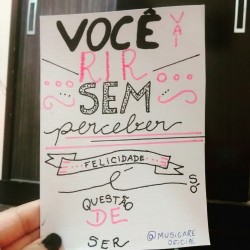 VOCÊ
VAI
RIR
SEM
perceber
FELICIDADE
É
SÓ
QUESTÃO
DE
SER
@MUSICARE
OFICIAL